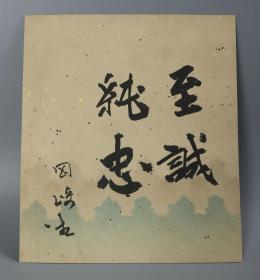 至誠
純忠
岡崎